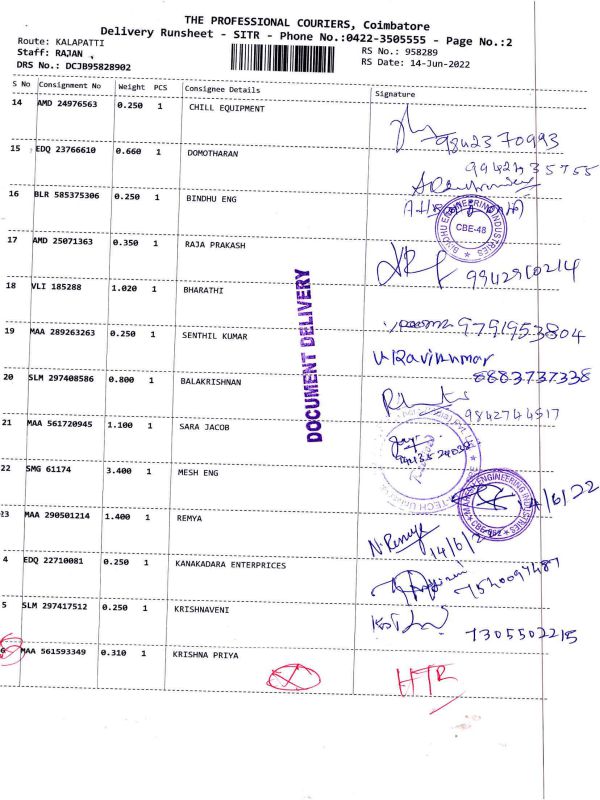 THE PROFESSIONAL COURIERS, Coimbatore
Delivery Runsheet - SITR - Phone No.:0422-3505555 - Page No.:2
Route: KALAPATTI
RS No.: 958289
Staff: RAJAN
RS Date: 14-Jun-2022
DRS No.: DCJB95828902
S No Consignment No Weight PCS Consignee Details Signature
14 AMD 24976563 0.250 1 CHILL EQUIPMENT
9842370993
15 EDQ 23766610 0.660 1 DOMOTHARAN
16 BLR 585375306 0.250 1 BINDHU ENG
CBE-48
17 AMD 25071363 0.350 1 RAJA PRAKASH
9942910214
18 VLI 185288 1.020 1 BHARATHI
9791953804
19 MAA 289263263 0.250 1 SENTHIL KUMAR
V Ravikumar
8883737338
20 SLM 297408586 0.800 1 BALAKRISHNAN
9842744517
21 MAA 561720945 1.100 1 SARA JACOB
22 SMG 61174 3.400 1 MESH ENG
14/6/22
23 MAA 290501214 1.400 1 REMYA
N Remya
14/6/2
4 EDQ 22710081 0.250 1 KANAKADARA ENTERPRICES
7540097487
5 SLM 297417512 0.250 1 KRISHNAVENI
7305502215
6 MAA 561593349 0.310 1 KRISHNA PRIYA
HTR
DOCUMENT DELIVERY